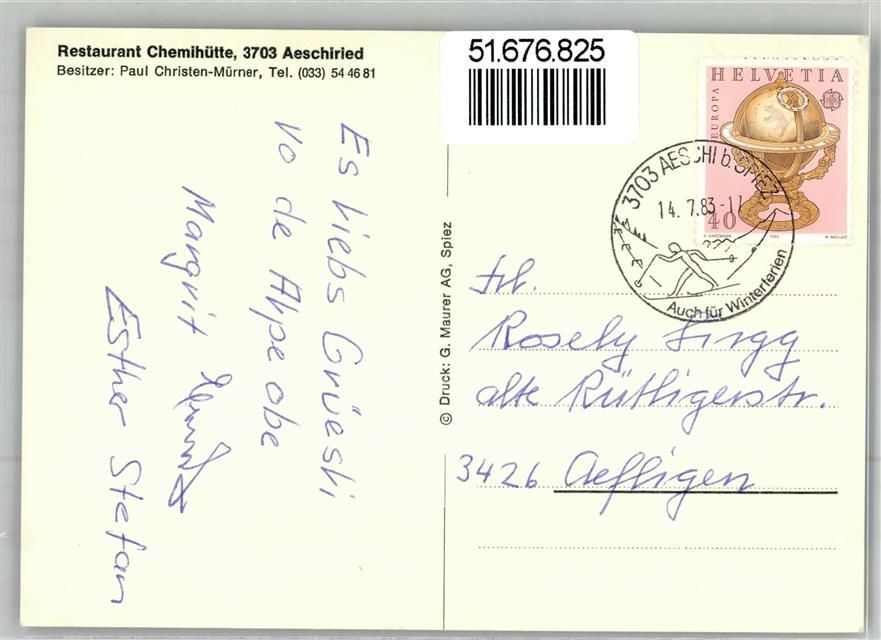 Restaurant Chemihütte, 3703 Aeschiried
Besitzer: Paul Christen-Mürner, Tel. (033) 54 46 81
51.676.825
HELVETIA
EUROPA
40
1983
W. MÜLLER
3703 AESCHI b. SPIEZ
14. 7. 83 - 11
Auch für Winterferien
Es liebs Grüessli
vo de Alpe obe
Margrit
Esther Stefan
© Druck: G. Maurer AG, Spiez
Frl.
Rosely
alte Rütligerstr.
3426 Aefligen